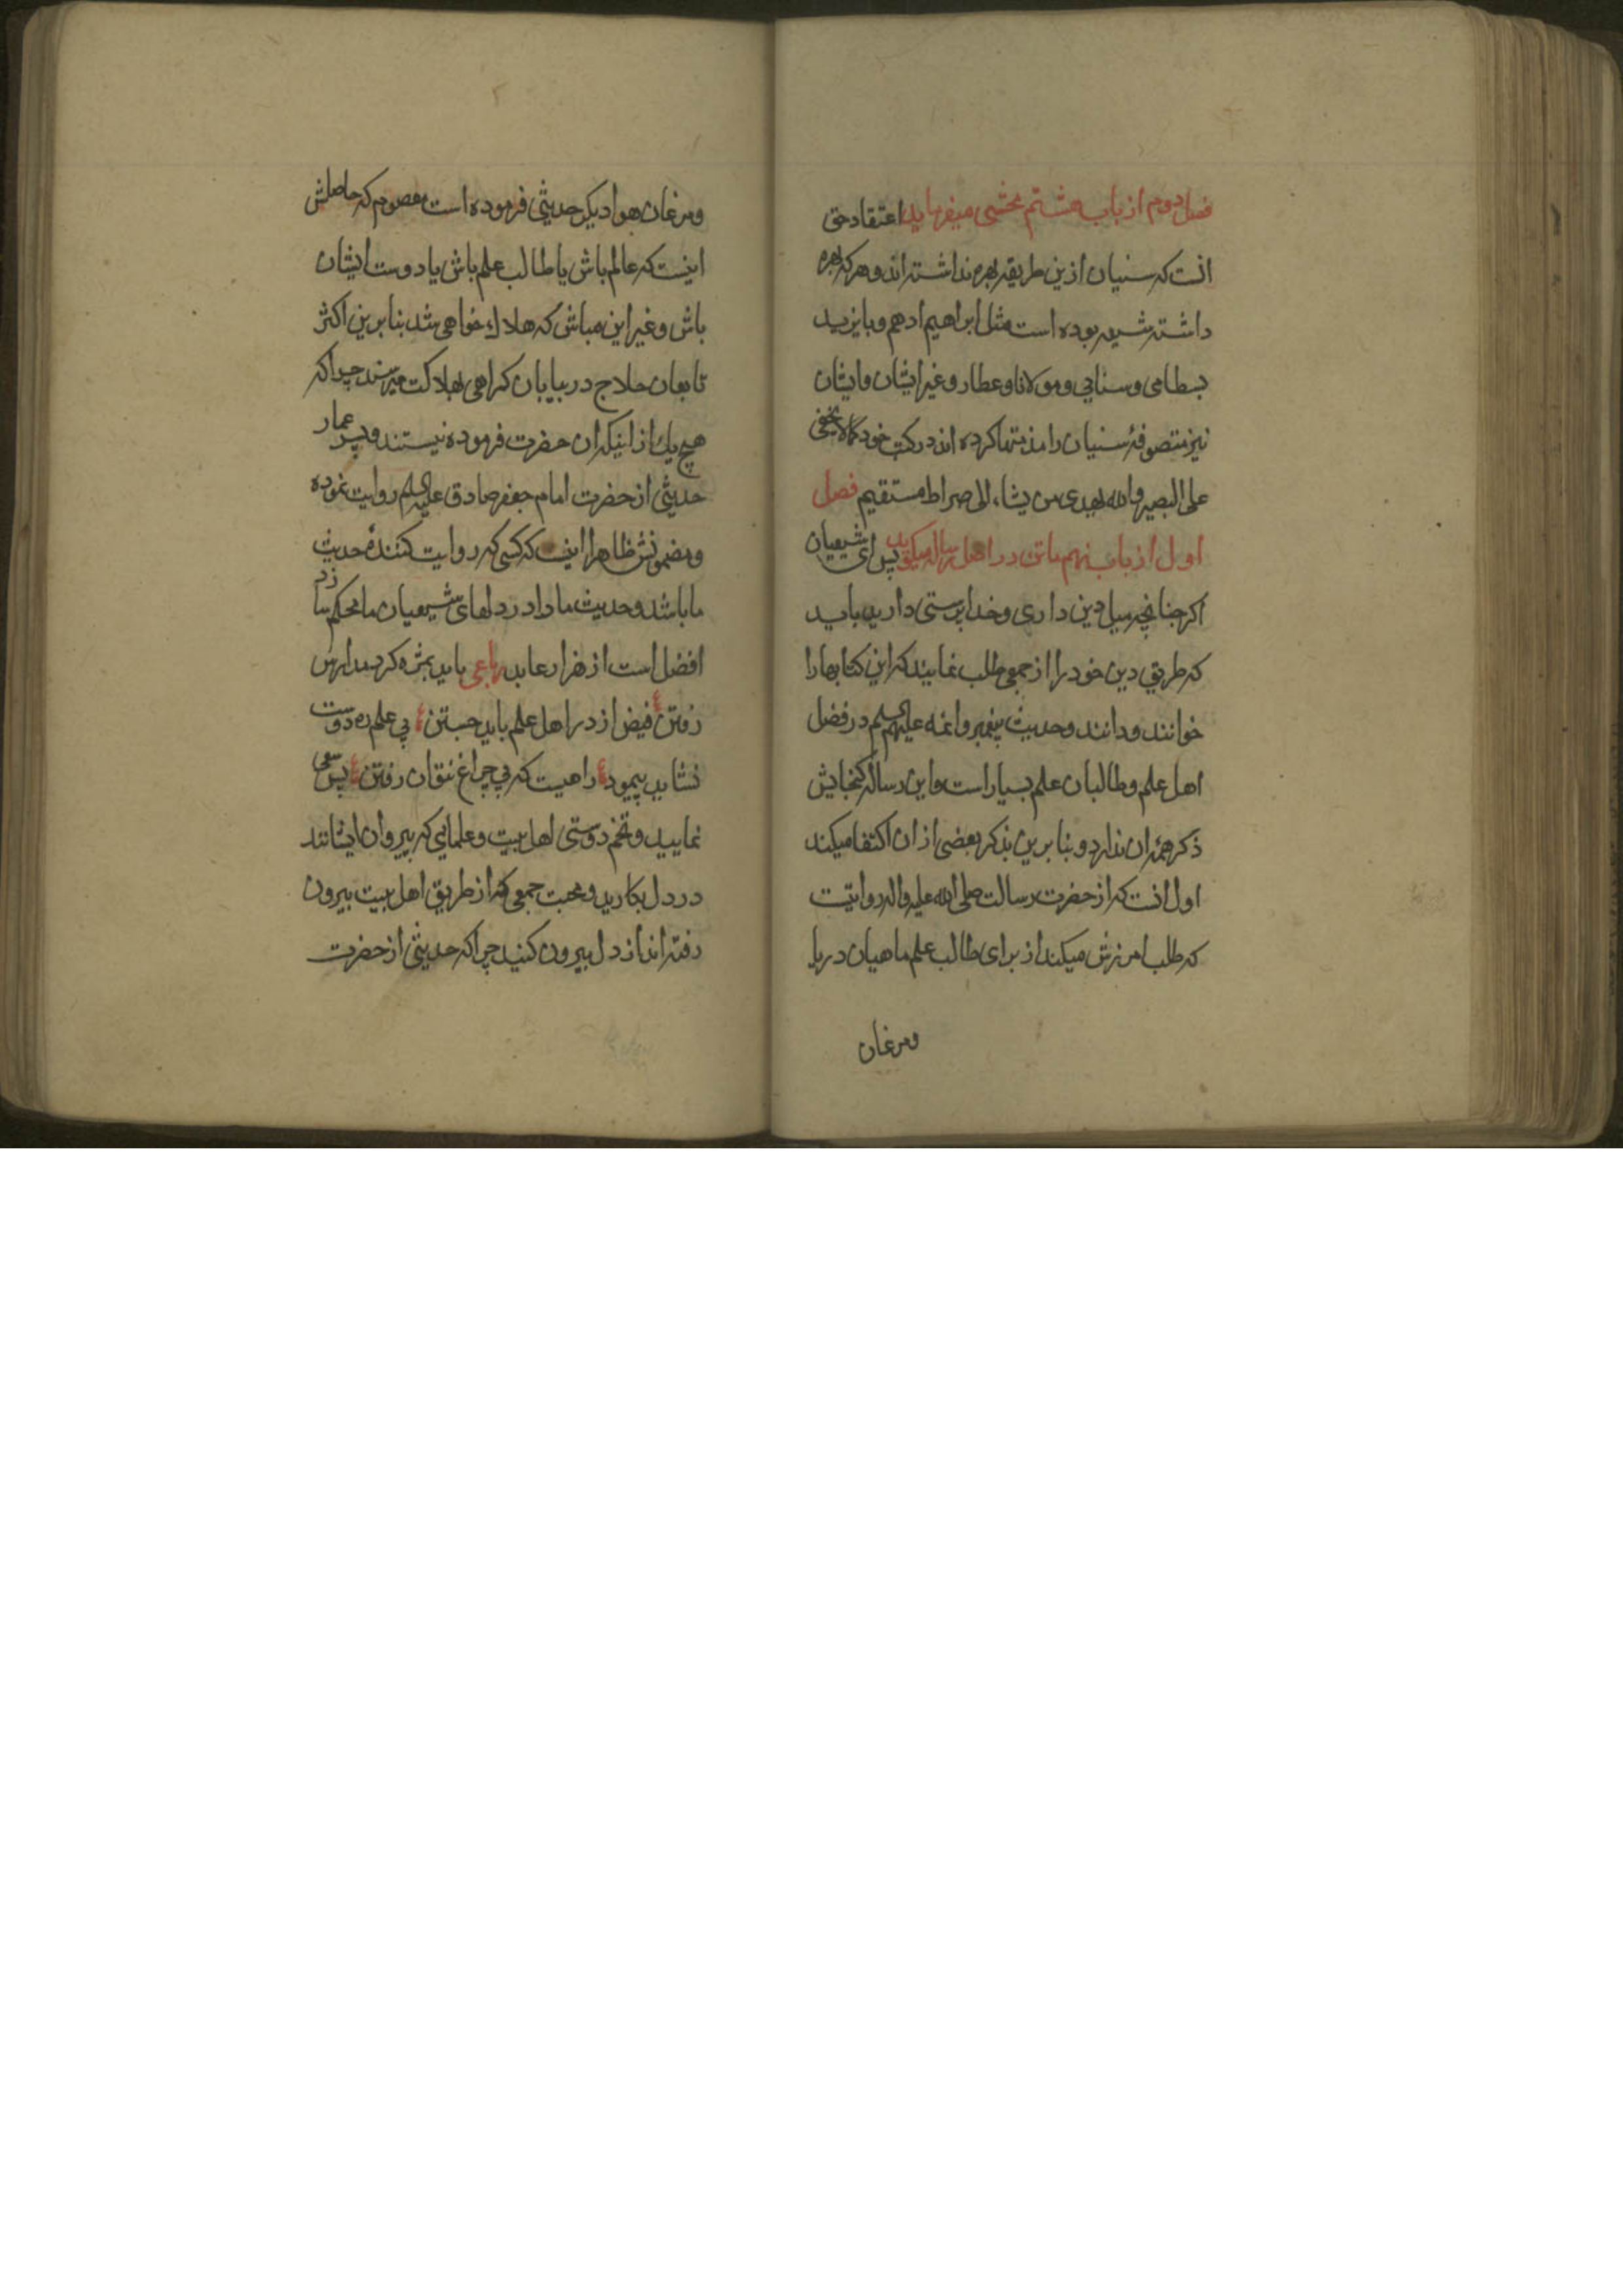 فصل دوم از باب هشتم محشی میفرماید اعتقاد حق
انست که سنیان ازین طریقه بهره نداشته اند و هرکه بهره
داشته شیعه بوده است مثل ابراهیم ادهم و بایزید
بسطامی و سنایی و مولانا و عطار و غیر ایشان و ایشان
نیز متصوفهٔ سنیان را مذمتها کرده اند در کتب خود کما لا یخفی
علی البصیر والله یهدی من یشاء الی صراط مستقیم فصل
اول از باب نهم ماتن در اصل رساله میکوید پس ای شیعیان
اکر چنانچه میل دین داری و خدا پرستی دارید باید
که طریق دین خود را از جمعی طلب نمایند که این کتابها را
خوانند و دانند و حدیث پیغمبر و ائمه علیهم السلم در فضل
اهل علم و طالبان علم بسیار است و این رساله کنجایش
ذکر همهٔ ان ندارد و بنا برین بذکر بعضی از ان اکتفا میکند
اول انست که از حضرت رسالت صلی الله علیه واله روایتست
که طلب امرزش میکند از برای طالب علم ماهیان دریا
ومرغان
ومرغان هوا دیکر حدیثی فرموده است معصوم که حاصلش
اینست که عالم باش یا طالب علم باش یا دوست ایشان
باش و غیر این مباش که هلاک خواهی شد بنا برین اکثر
تابعان حلاج در بیابان کمراهی بهلاکت میرسند چرا که
هیچ یک از اینکه ان حضرت فرموده نیستند و پسر عمار
حدیثی از حضرت امام جعفر صادق علیه السلم روایت نموده
و مضمونش ظاهرا اینست که کسی که روایت کنندهٔ حدیث
ما باشد و حدیث ما را در دلهای شیعیان ما محکم سازد
افضل است از هزار عابد رباعی باید بمژه کرد
رفتن ع فیض از در اهل علم باید جستن ع بی علم ره دوست
نشاید پیمود ع راهیست که بی چراغ نتوان رفتن ع پس سعی
نمایید و تخم دوستی اهل بیت و علمایی که پیروان ایشانند
در دل بکارید و محبت جمعی که از طریق اهل بیت بیرون
رفته اند از دل بیرون کنید چرا که حدیثی از حضرت